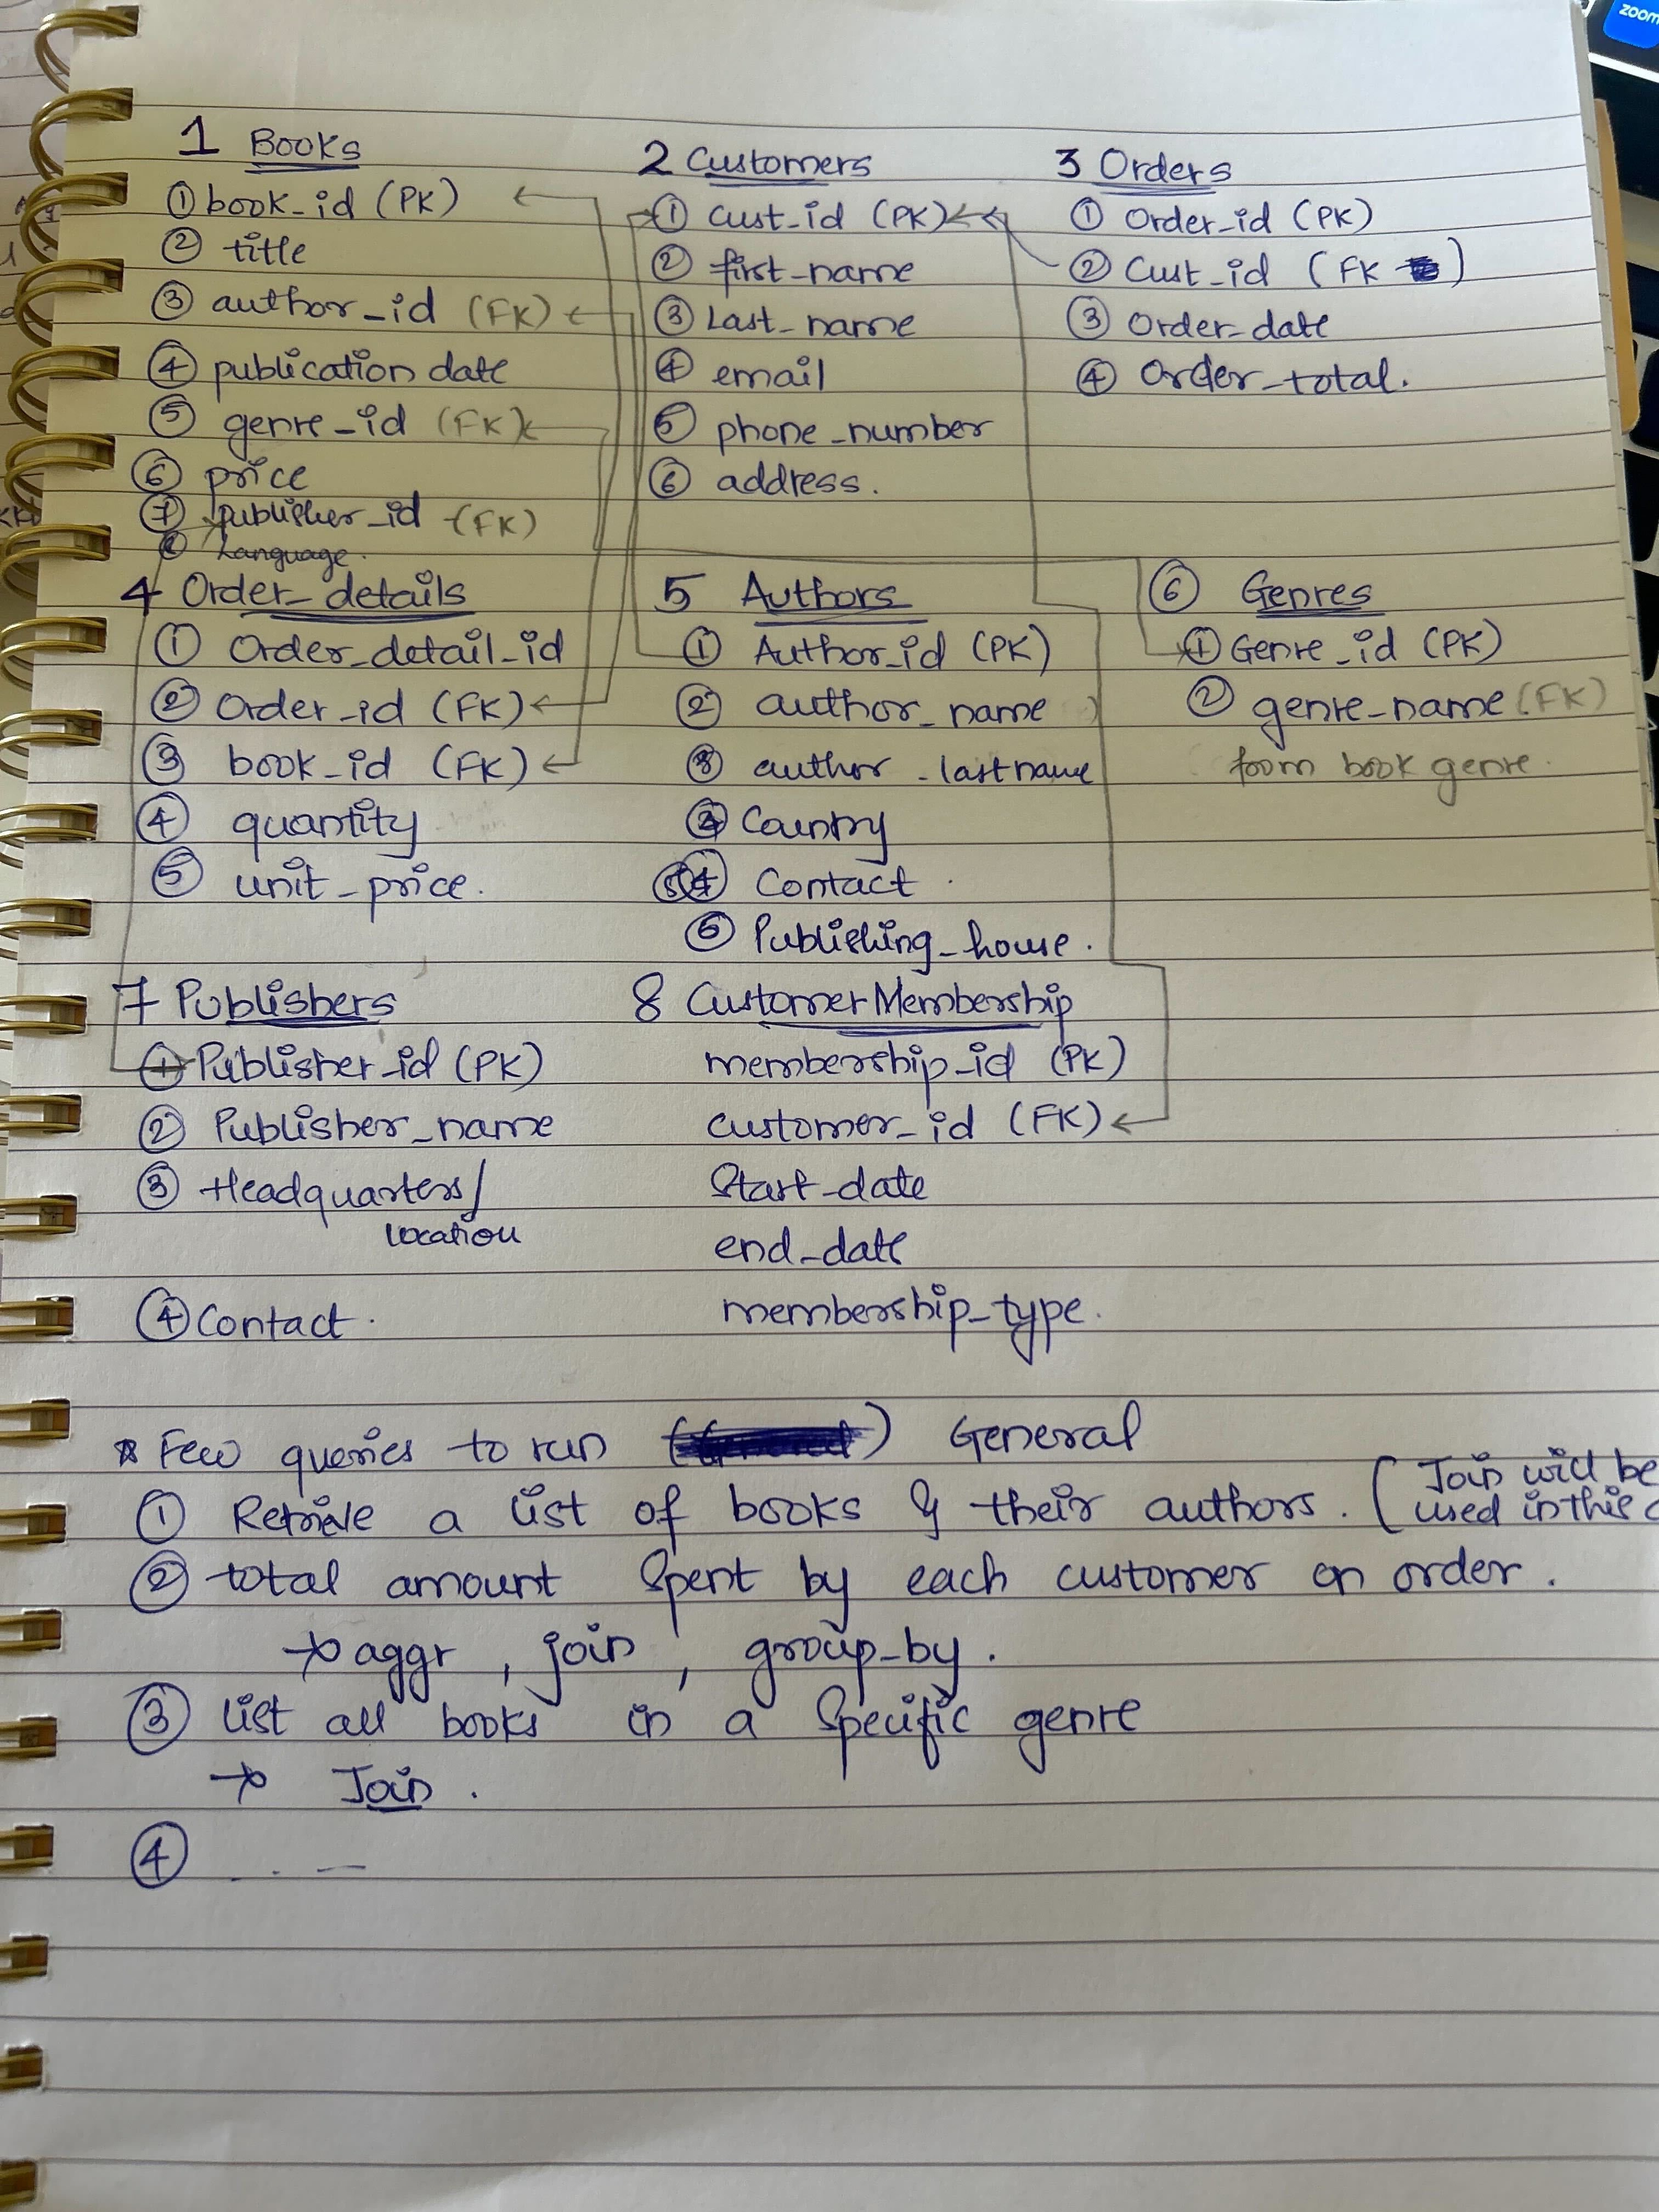 zoom
1 Books
① book_id (PK)
② title
③ author_id (FK)
④ publication date
⑤ genre_id (FK)
⑥ price
⑦ publisher_id (FK)
⑧ Language.
2 Customers
① Cust_id (PK)
② first_name
③ Last_name
④ email
⑤ phone_number
⑥ address.
3 Orders
① Order_id (PK)
② Cust_id (FK )
③ Order_date
④ Order_total.
4 Order_details
① Order_detail_id
② Order_id (FK)
③ book_id (FK)
④ quantity
⑤ unit_price.
5 Authors
① Author_id (PK)
② author_name
③ author_lastname
④ Country
⑤ Contact.
⑥ Publishing_house.
⑥ Genres
① Genre_id (PK)
② genre_name (FK)
from book genre.
7 Publishers
① Publisher_id (PK)
② Publisher_name
③ Headquarters/
location
④ Contact.
8 Customer Membership
membership_id (PK)
customer_id (FK)
Start_date
end_date
membership_type.
* Few queries to run ( ) General
① Retrieve a list of books & their authors. (Join will be
used in this
② total amount spent by each customer on order.
→ aggr, join, group_by.
③ list all books in a specific genre
→ Join.
④ . . —